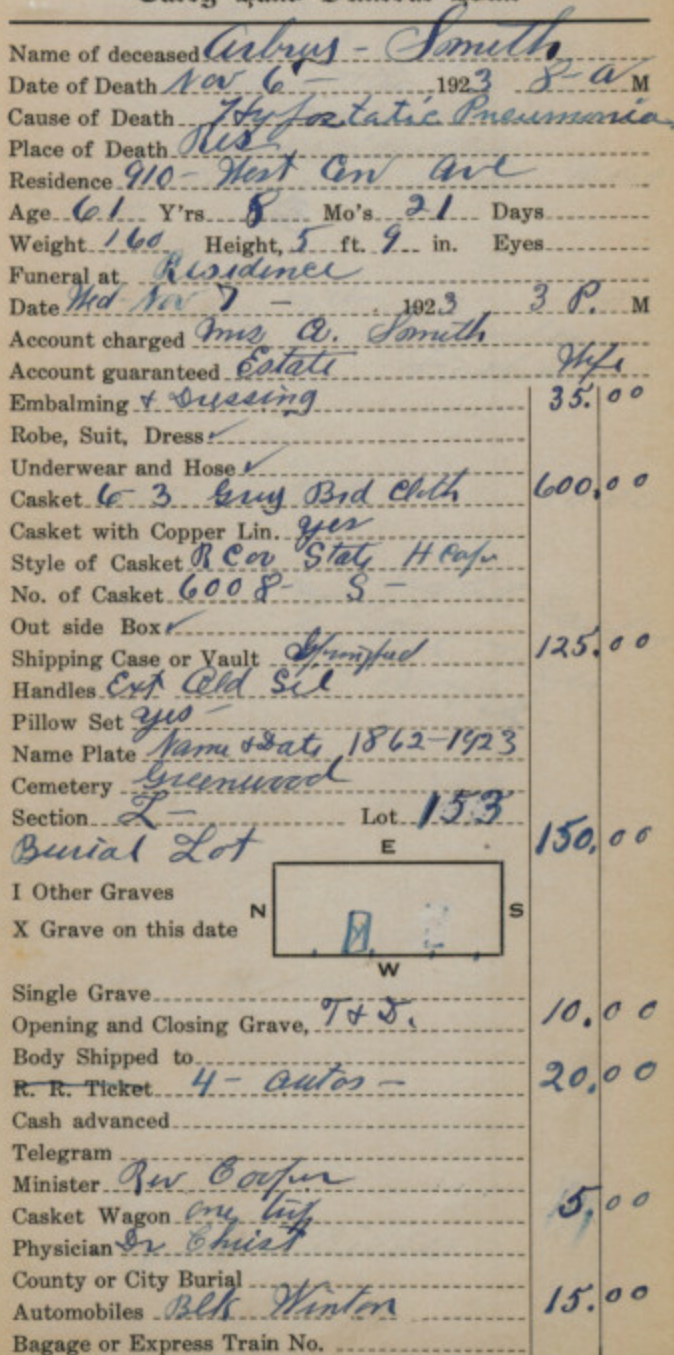 Name of deceased Arbrus - Smith
Date of Death Nov 6 - 1923 8-a M
Cause of Death Hyfostatic Pneumonia
Place of Death Res
Residence 910- West Cen Ave
Age 61 Y'rs 8 Mo's 21 Days
Weight 160 Height, 5 ft. 9 in. Eyes
Funeral at Residence
Date Wed Nov 7 - 1923 3 P. M
Account charged Mrs A. Smith
Account guaranteed Estate Wife
Embalming & Dressing 35.00
Robe, Suit, Dress ✓
Underwear and Hose ✓
Casket 6-3 Grey Brd Cloth 600.00
Casket with Copper Lin. yes
Style of Casket R Cor State H Cap
No. of Casket 6008- S -
Out side Box ✓
Shipping Case or Vault 125.00
Handles Ext Old Sil
Pillow Set yes -
Name Plate Name & Date, 1862-1923
Cemetery Greenwood
Section L - Lot 153
Burial Lot 150.00
E
I Other Graves
N S
X Grave on this date
W
Single Grave
Opening and Closing Grave, T & D. 10.00
Body Shipped to
R. R. Ticket 4- autos - 20.00
Cash advanced
Telegram
Minister Rev Cooper
Casket Wagon one trip 5.00
Physician Dr Christ
County or City Burial
Automobiles Blk Winton 15.00
Bagage or Express Train No.